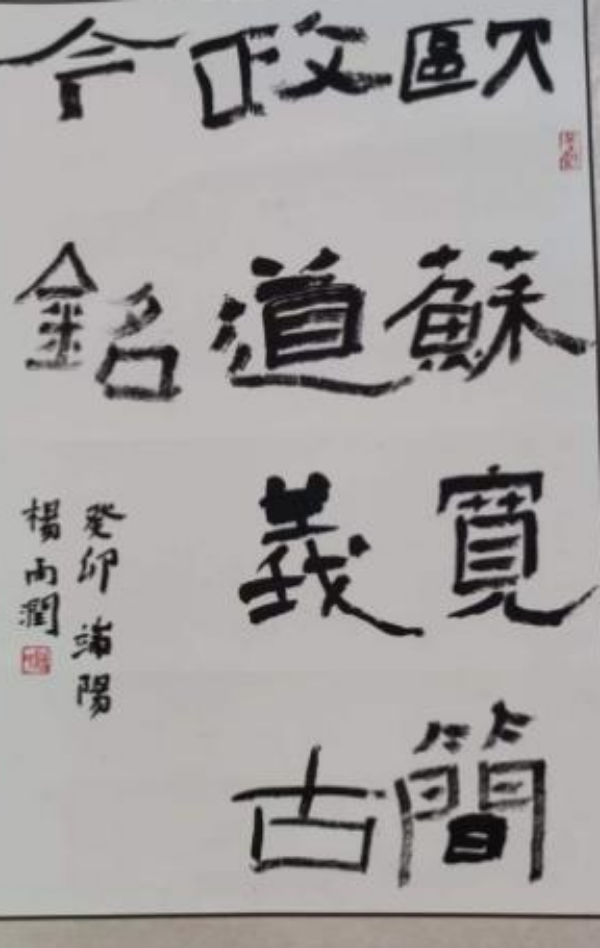 歐蘇寬簡
政道義古
今銘
癸卯端陽
楊雨潤